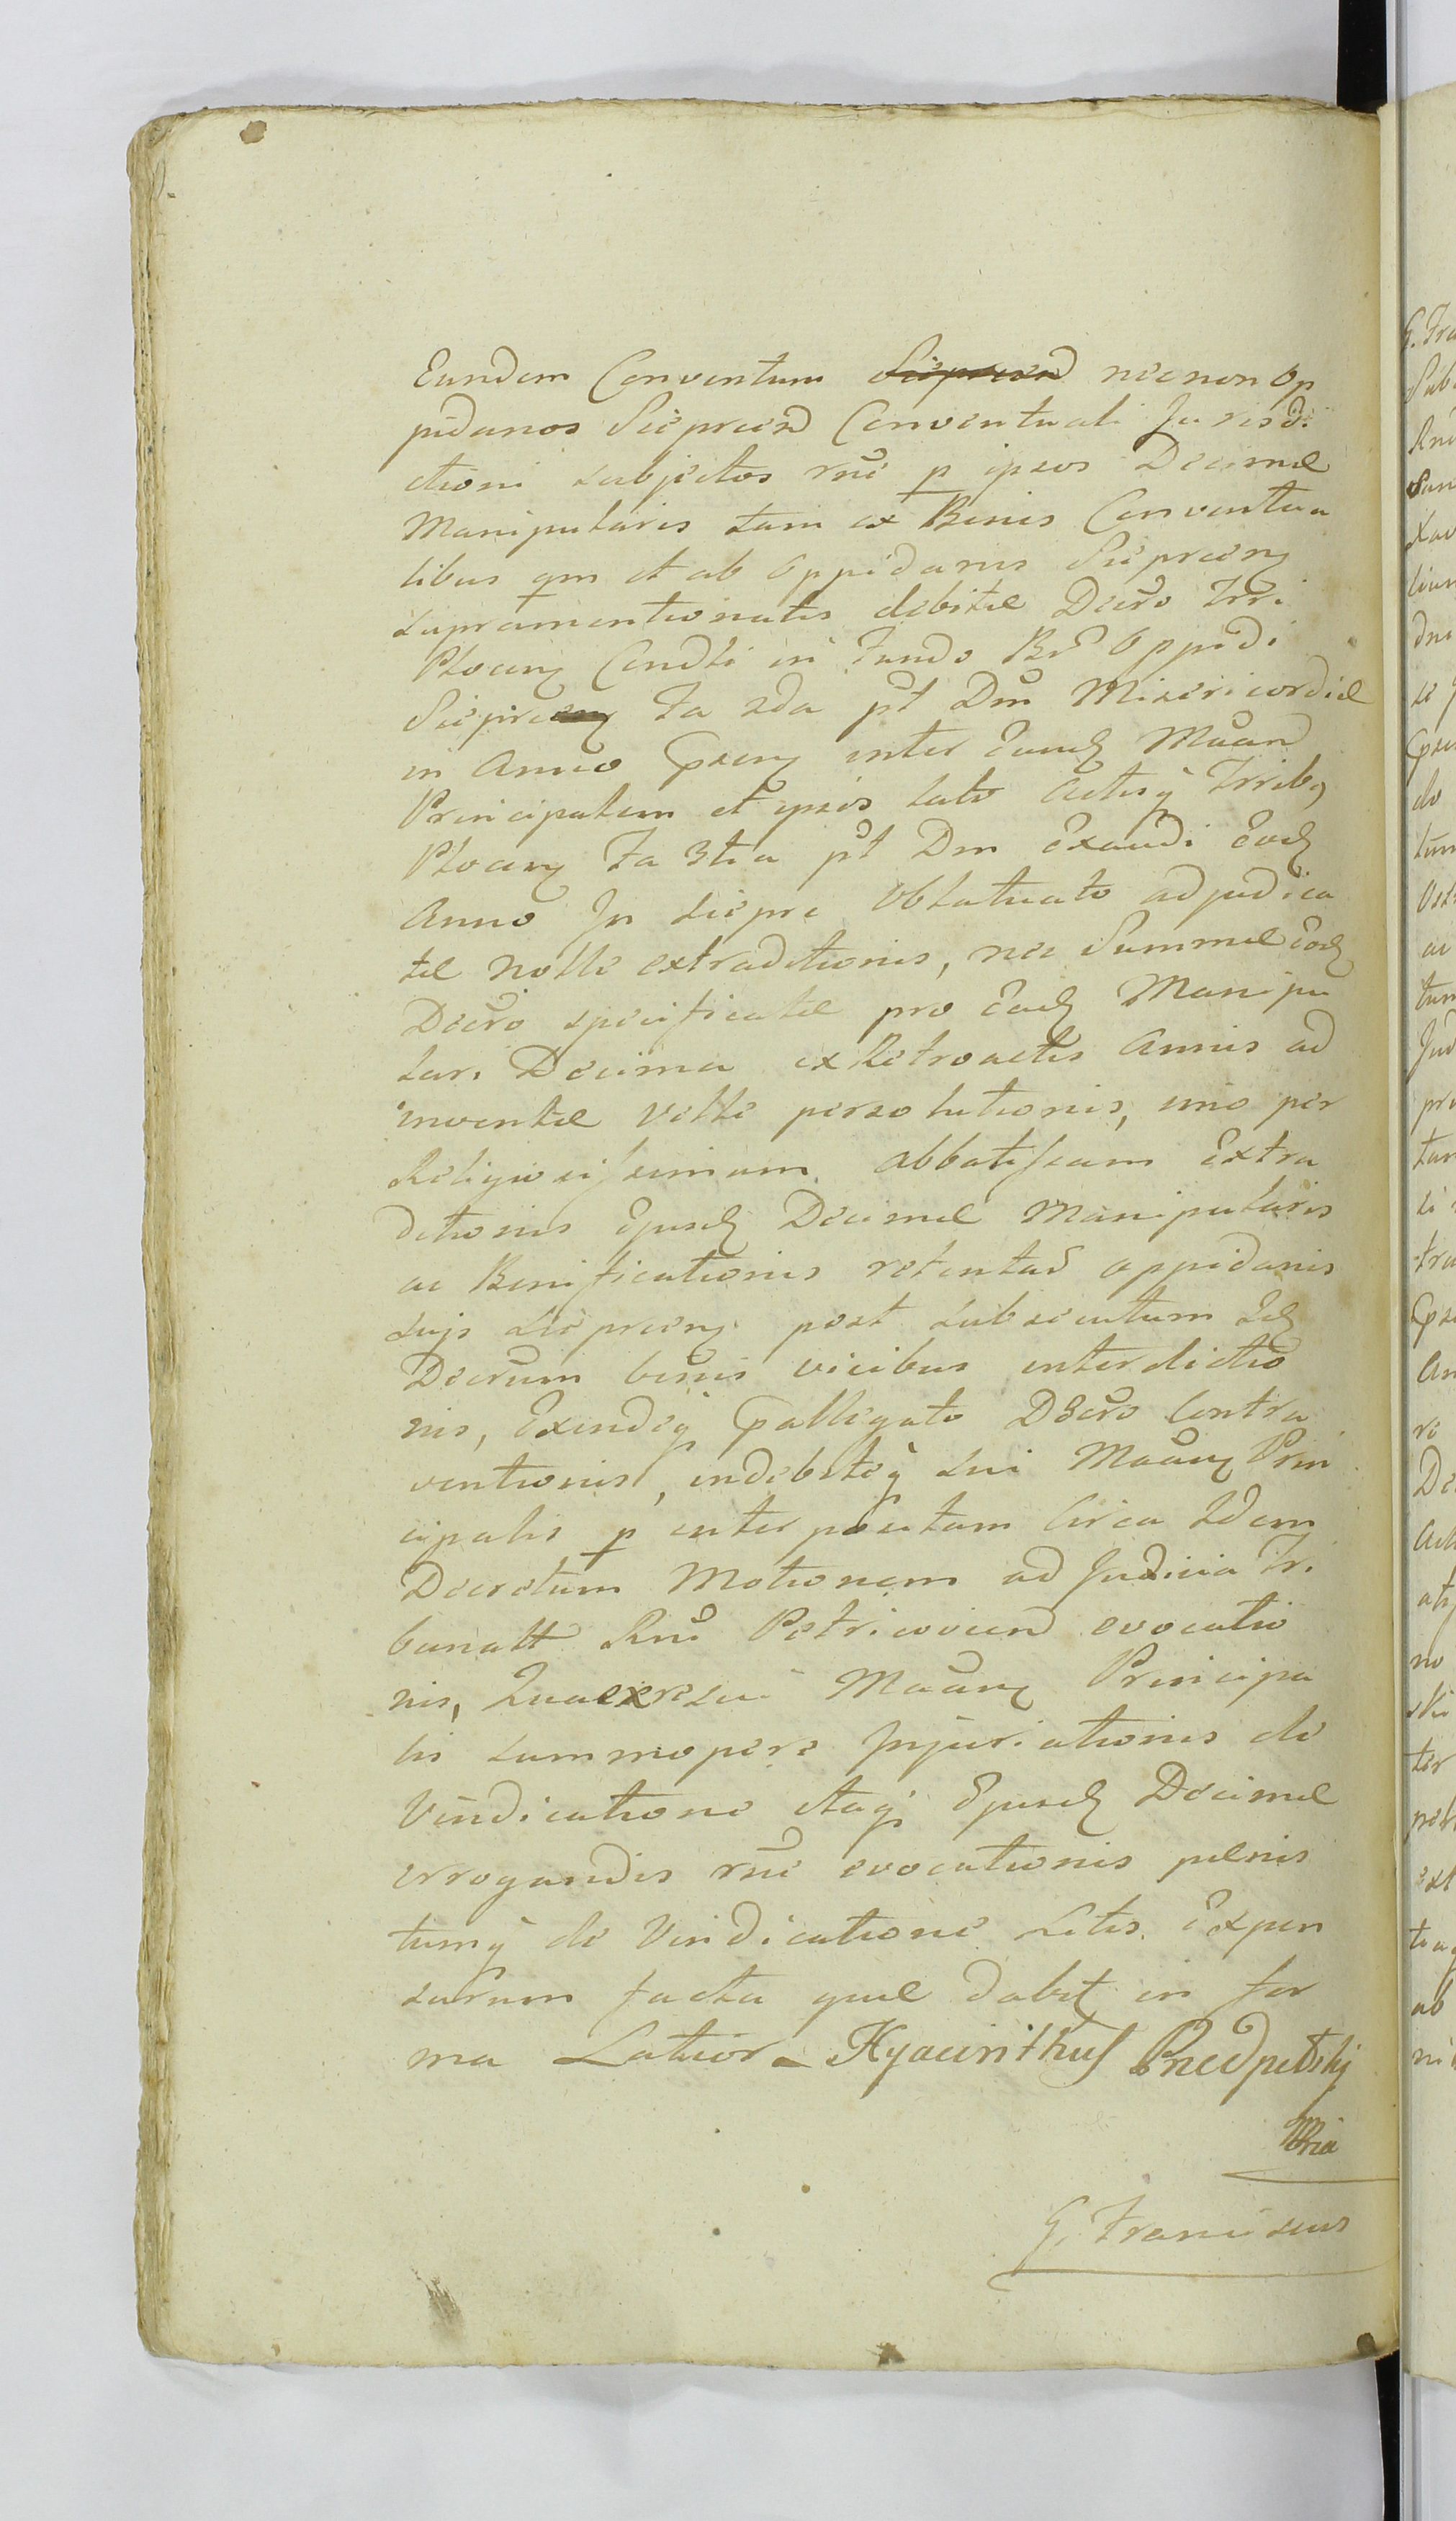 Eundem Conventum Sieprcen necnon Op
pidanos Sieprcen Conventuali Jurisdi
ctioni subjectos rne p ipsos Decimæ
Manipularis tam ex Bonis Conventua
libus qm et ab Oppidanis Sieprcen
supramentionatis debitæ Decro Trri
Plocen Condti in fundo Br Oppidi
Sieprcen Fa 2da pt Dm Misericordiæ
in Anno Gsen inter Eund Maan
Principalem et ipsos lato Actisq Trrib9
Plocen Fa 3tia pt Dm Exaudi Eod
Anno In Siepre oblatuato adjudica
tæ Nolle extraditionis, nec Summæ Eod
Decro specificatæ pro Ead Manipu
lari Decima ex Retroactis Annis ad
inventæ Velle persolutionis, imo per
Religiosissimam Abbatissam Extra
ditionis Ejusd Decimæ Manipularis
ac Bonificationis retentæ Oppidanis
suis Sieprcen post subsecutum Id
Decrum binis vicibus interdictio
nis, Exindeq Gallegato Decro Contra
ventionis, indebiteq sui Maan Prin
cipalis p interpositam Circa Idem
Decretum Motionem ad Judicia Tri
bunalt Rni Petricovien evocatio
nis, Quaexre sui Maan Principa
lis summopere Injuriationis de
Vindicatione itaq Ejusd Decimæ
irrogandis rne evocationis pænis
tumq de Vindicatione Litis Expen
sarum facta quæ dabit in for
ma Latior - Hyacinthus Przedpełski
mpria
G. Franciscus